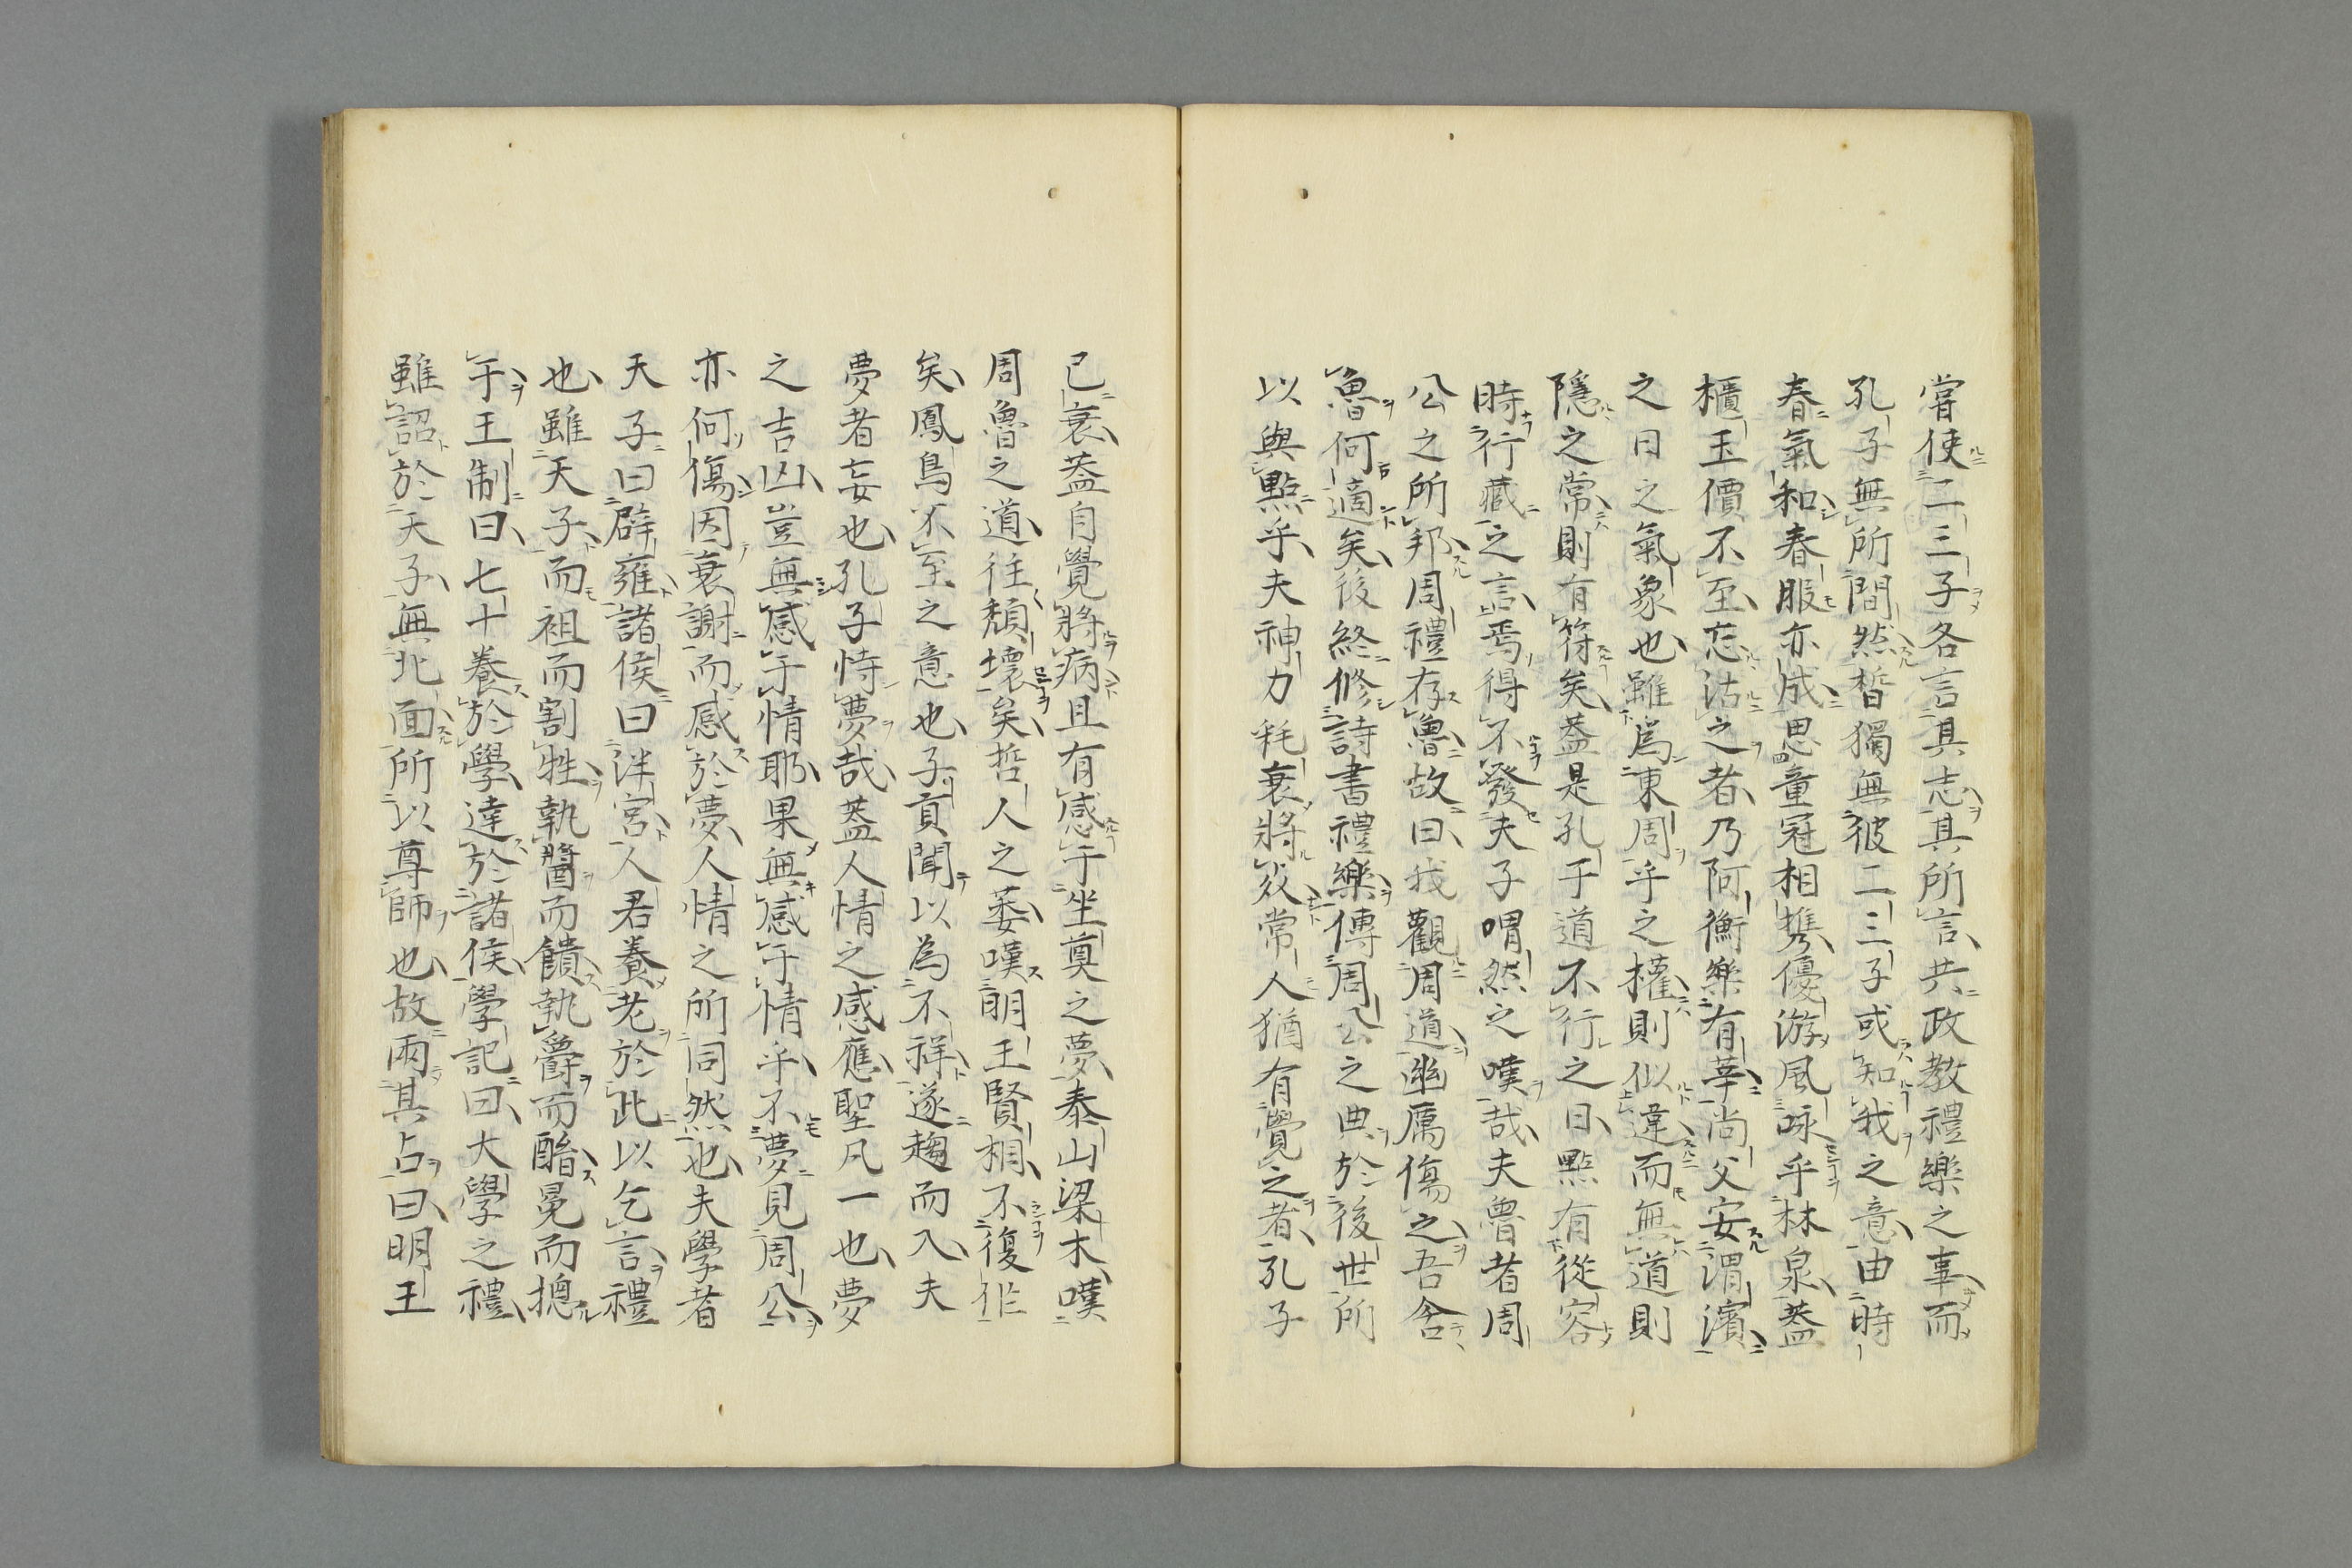 嘗使二三子各言其志其所言共政教禮樂之事而
孔子無所間然晳獨無彼二三子或知我之意由時
春氣和春服亦成思童冠相携優游風咏乎林泉蓋
櫃玉價不至忘沽之者乃阿衡樂有莘尚父安渭濱
之日之氣象也雖爲東周乎之權則似違而無道則
隱之常則有符矣蓋是孔于道不行之日點有從容
時行藏之言焉得不發夫子喟然之嘆哉夫魯者周
公之所邦周禮存魯故曰我觀周道幽厲傷之吾舍
魯何適矣後終修詩書禮樂傳周公之典於後世所
以與點乎夫神力耗衰將歿常人猶有覺之者孔子
已衰蓋自覺將病且有感于坐奠之夢泰山梁木嘆
周魯之道往頽壞矣哲人之萎嘆明王賢相不復作
矣鳳鳥不至之意也子貢聞以為不祥遂趨而入夫
夢者妄也孔子恃夢哉蓋人情之感應聖凡一也夢
之吉凶豈無感于情耶果無感于情乎不夢見周公
亦何傷因衰謝而感於夢人情之所同然也夫學者
天子曰辟雍諸侯曰泮宮人君養老於此以乞言禮
也雖天子而袒而割牲執醬而饋執爵而酳冕而摠
干王制曰七十養於學達於諸侯學記曰大學之禮
雖詔於天子無北面所以尊師也故兩其占曰明王